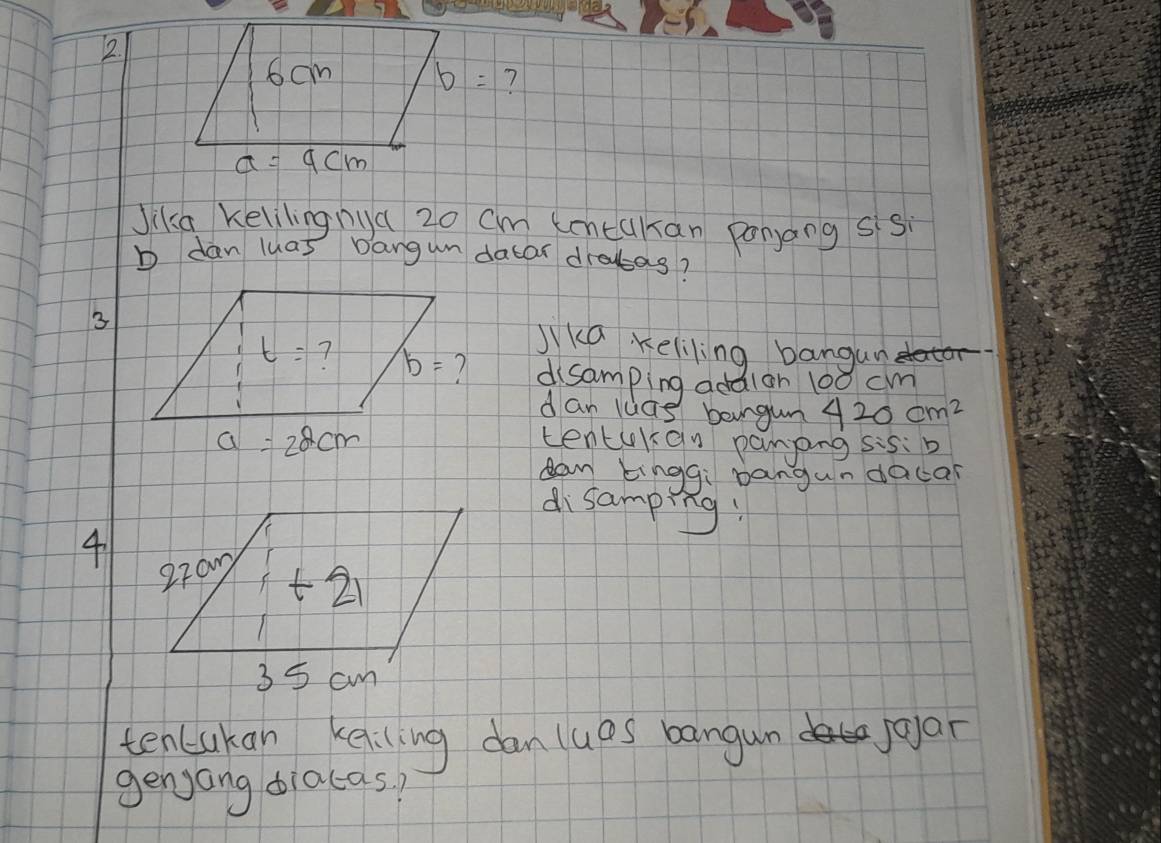 2.
6 cm
b = ?
a = 9 cm
Jika kelilingnya 20 cm tentukan panjang sisi
b dan luas bangun datar diatas?
3
t = ?
b = ?
a = 28 cm
Jika keliling bangun datar
disamping adalah 100 cm
dan luas bangun 420 cm²
tentukan panjang sisi b
dan tinggi bangun datar
disamping!
4.
27 cm
t 21
35 cm
tentukan keliling dan luas bangun data jajar
genjang diatas?